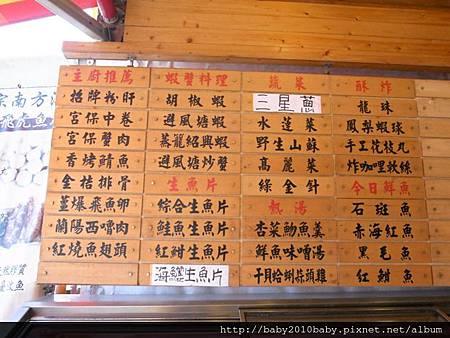 主厨推薦
招牌粉肝
宮保中卷
宮保蟹肉
香烤鯖魚
金桔排骨
薑爆飛魚卵
蘭陽西嚕肉
紅燒魚翅頭
蝦蟹料理
胡椒蝦
避風塘蝦
蒸龍紹興蝦
避風塘炒蟹
生魚片
綜合生魚片
鮭魚生魚片
紅魽生魚片
海鱺生魚片
蔬菜
三星蔥
水蓮菜
野生山蘇
高麗菜
綠金針
熱湯
杏菜魩魚羹
鮮魚味噌湯
干貝蛤蜊蒜頭雞
酥炸
龍珠
鳳梨蝦球
手工花枝丸
炸咖哩軟絲
今日鮮魚
石斑魚
赤海紅魚
黑毛魚
紅魽魚
南方
飛虎魚
http://baby2010baby.pixnet.net/album